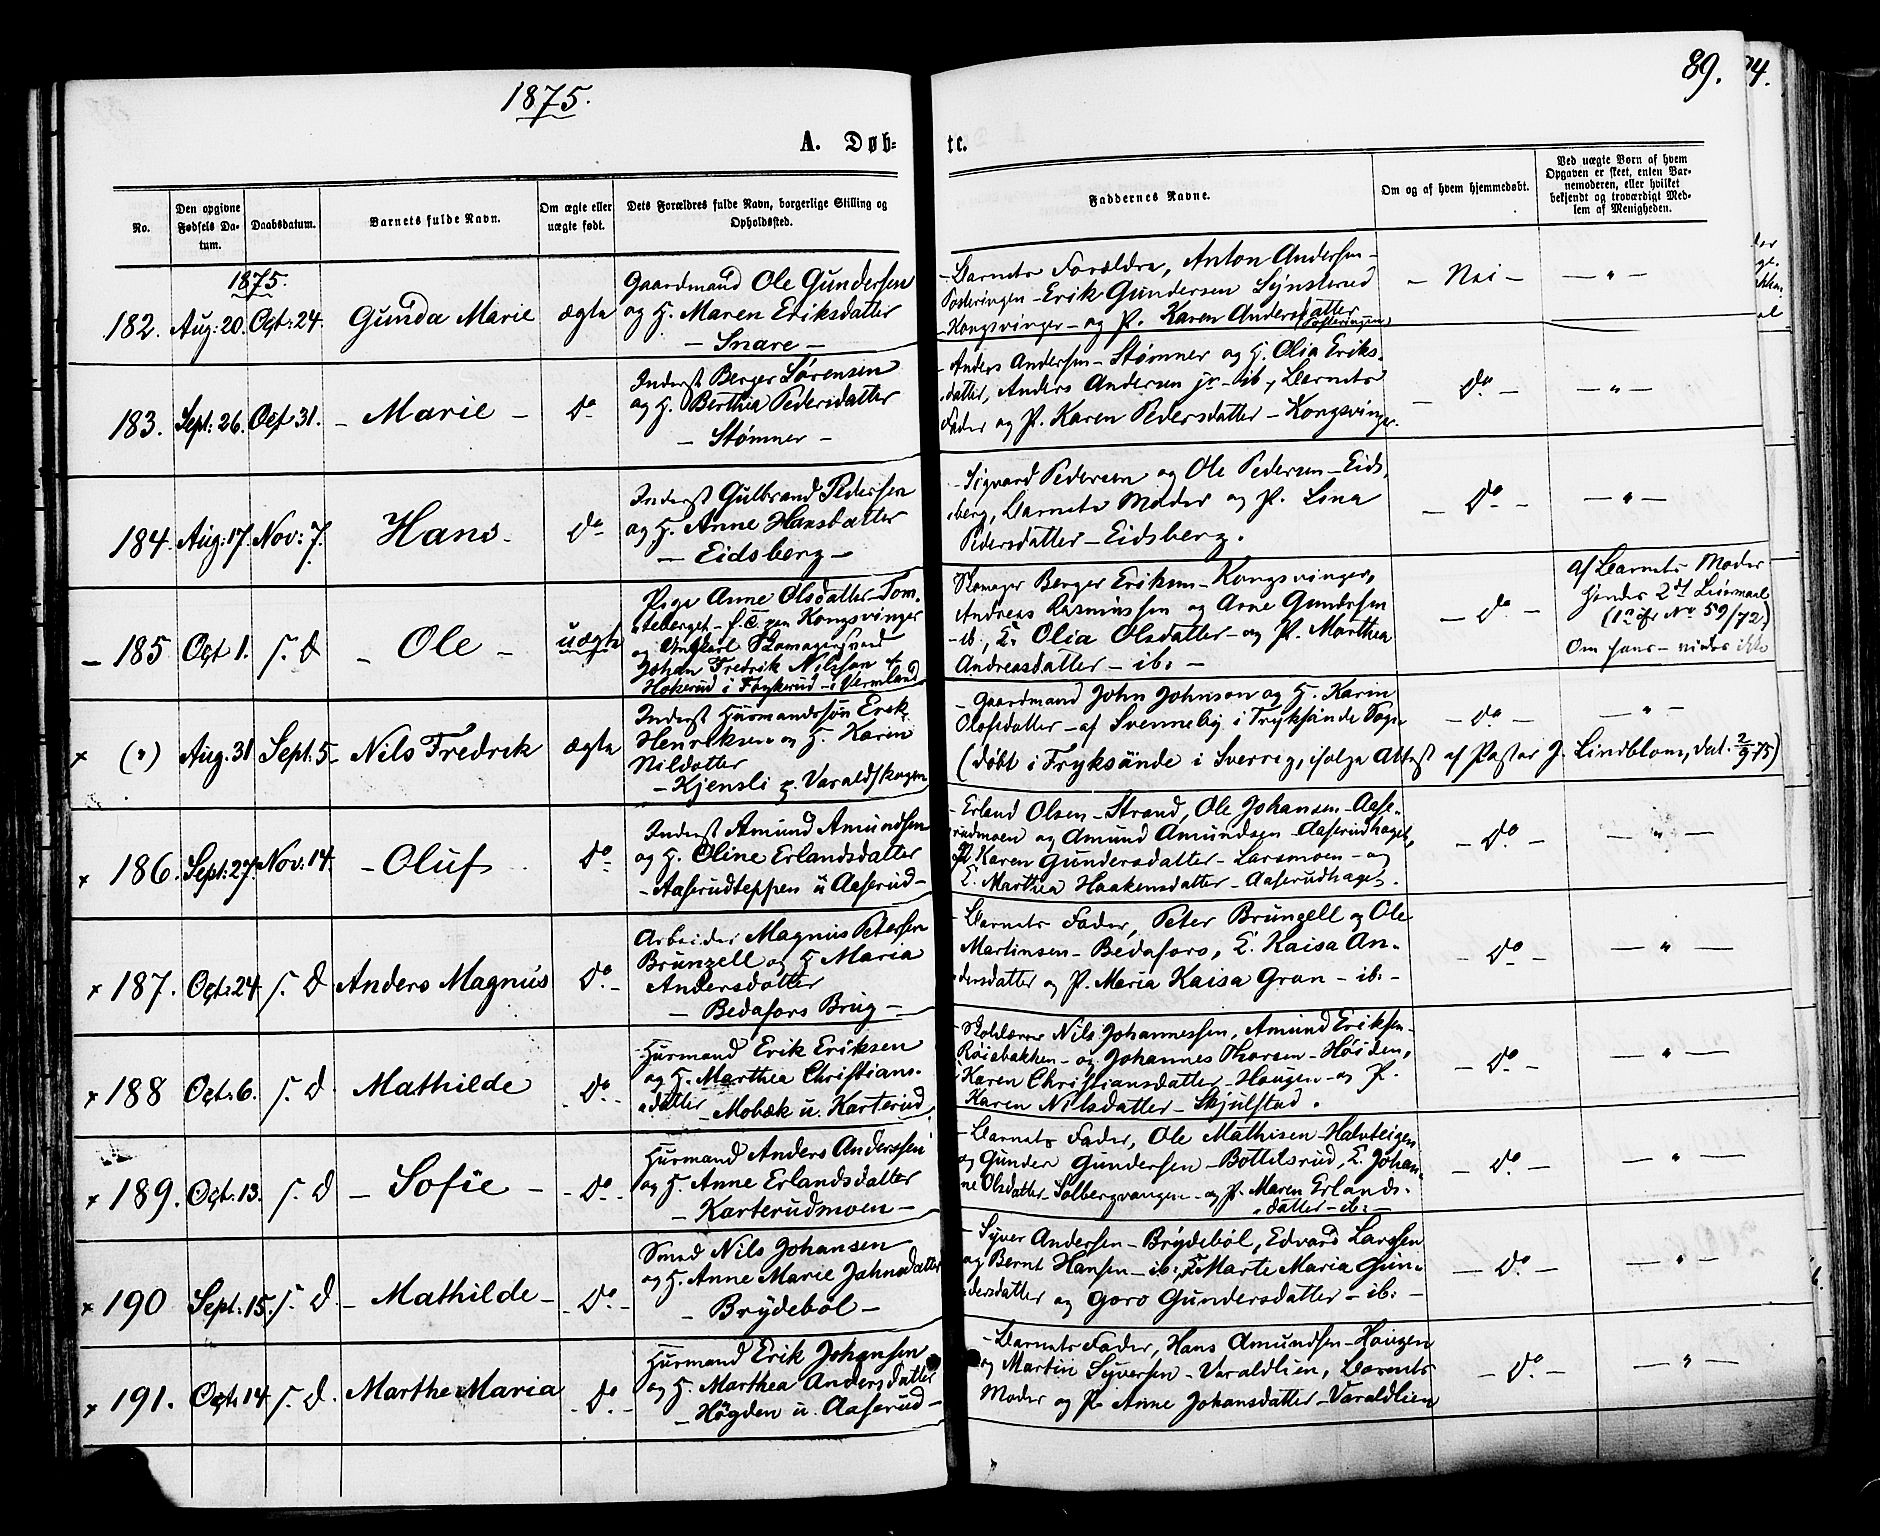 1875.
89.
94.
A. Døb-
te.
No.
Den opgivne
Fødsels Da-
tum.
Daabsdatum.
Barnets fulde Navn.
Om ægte eller
uægte født.
Dets Forældres fulde Navn, borgerlige Stilling og
Opholdssted.
Faddernes Navne.
Om og af hvem hjemmedøbt.
Ved uægte Børn af hvem
Opgaven er skeet, enten Bar-
nemoderen, eller hvilket
bekjendt og troværdigt Med-
lem af Menigheden.
1875.
182. Aug: 20. Oct: 24. Gunda Marie ægte
Gaardmand Ole Gundersen
og H. Maren Eriksdatter
- Snare -
- Barnets Forældre, Anton Andersen -
- Erik Gundersen
Kongsvinger - og P. Karen Andersdatter
- Nei - - " -
183. Sept: 26. Oct 31. - Marie - do
Inderst Berger Sørensen
og H. Berthea Pedersdatter
- Stømner -
- Anders Andersen - Stømner og H. Olia Eriks-
datter, Anders Andersen jr - ib., Barnets
Fader og P. Karen Pedersdatter - Kongsvinger.
- do - - " -
184. Aug: 17. Nov: 7. Hans - do
Inderst Gulbrand Pedersen
og H. Anne Hansdatter
- Eidsberg -
- Sigvard Pedersen og Ole Pedersen - Eids-
berg, Barnets Moder og P. Lina
Pedersdatter - Eidsberg.
- do - - " -
- 185. Oct 1. s. D - Ole - uægte
Pige Anne Olsdatter - Tom-
steberget - f. C. paa Kongsvinger
og Ungkarl Skomagersvend
Johan Fredrik Nilsson
Hokerud i Frykerud - i Vermland
Skomager Berger Eriksen - Kongsvinger,
Andreas Rasmussen og Arne Gundersen
- ib., E. Olia Olsdatter - og P. Marthea
Andreasdatter - ib: -
- do -
Af Barnets Moder
Hendes 2det Leiermaal
(1ste cfr No 59/72)
Om hans - vides ikke
x (") Aug. 31 Sept: 5 - Nils Fredrik ægte
Inderst Husmandssøn Erik
Henriksen og H. Karin
Nilsdatter
- Kjensli p. Varaldskogen
- Gaardmand John Johnson og H. Karin
Olofsdatter - af Svenneby i Fryksände Sogn
(døbt i Fryksände i Sverrig, ifølge Attest af Pastor J. Lindblom, dat. 2/9 75)
- do - - " -
x 186. Sept: 27. Nov: 14. - Oluf do -
Inderst Amund Amundsen
og H. Oline Erlandsdatter
- Aaserudteppen u Aaserud -
- Erland Olsen - Strand, Ole Johansen - Aase-
rudmoen og Amund Amundsen - Aaserudhaget,
P. Karen Gundersdatter - Larsmoen - og
E. Marthea Haakensdatter - Aaserudhaget.
- do - - " -
x 187. Oct: 24. s. D Anders Magnus do -
Arbeider Magnus Petersen
Brunzell og H Maria
Andersdotter
- Bedafors Brug -
- Barnets Fader, Peter Brunzell og Ole
Martinsen - Bedafors, E. Kaisa An-
dersdatter og P. Maria Kaisa Gran - ib:
- do - - " -
x 188 Oct: 6. s. D. Mathilde - do -
Husmand Erik Eriksen
og H. Marthea Christians-
datter - Mobæk u. Karterud
Skolelærer Nils Johannessen, Amund Eriksen -
Røisbakken - og Johannes Thorsen - Høiden,
Karen Christiansdatter - Hougen - og P.
Karen Nilsdatter - Skjulstad.
- do - - " -
x 189. Oct: 13. s. D - Sofie - - do -
Husmand Anders Anderssen
og H. Anne Erlandsdatter
- Karterudmoen -
- Barnets Fader, Ole Mathisen - Halvteigen
og Gunder Gundersen - Bottilsrud, E. Johan-
ne Olsdatter - Solbergvangen - og P. Maren Erlands-
datter - ib: -
- do - - " -
x 190 Sept: 15. s. D. - Mathilde - - do -
Smed Nils Johansen
og H. Anne Marie Jahnsdatter
- Brydeböl -
- Syver Andersen - Brydeböl, Edvard Larssen
og Bernt Hansen - ib:, E Marte Maria Gun-
dersdatter og Goro Gundersdatter - ib: -
- do - - " -
x 191. Oct: 14 s. D. Marthe Maria - do -
Husmand Erik Johansen
og H. Marthea Andersdatter
- Högden u. Aaserud -
- Barnets Fader, Hans Amundsen - Hougen
og Martin Syversen - Varaldlien, Barnets
Moder og P. Anne Johansdatter - Varaldlien
- do - - " -